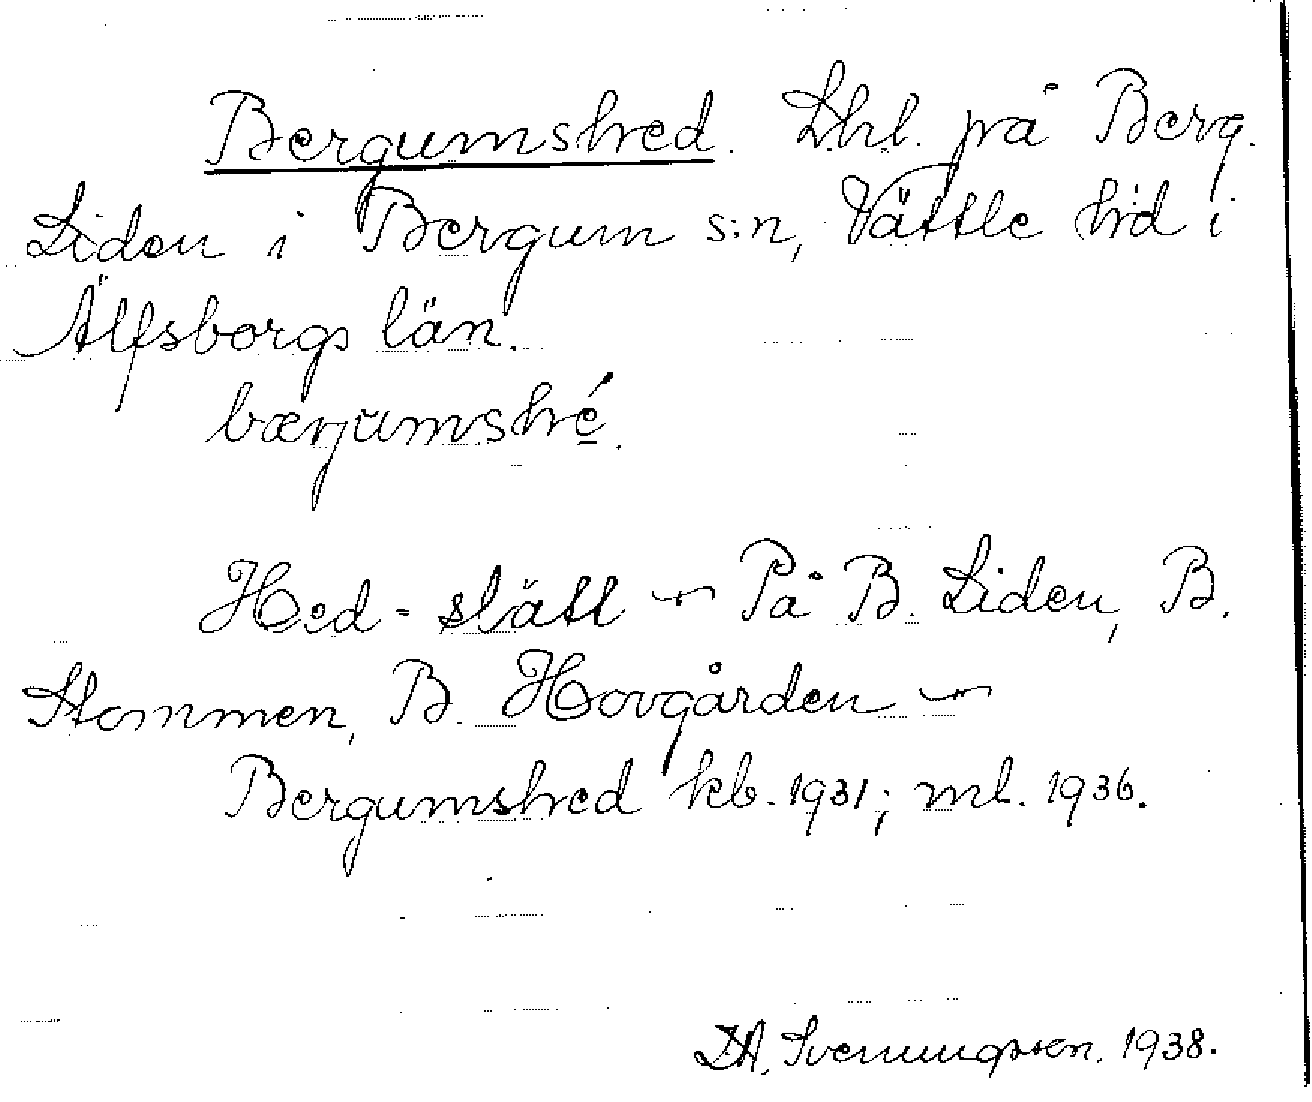 Bergumshed. Lhl. på Berg.
Liden i Bergum s:n, Vättle hd i
Älfsborgs län.
bærjumshé.
Hed-slätt ~ På B. Liden, B.
Stommen, B. Hovgården ~
Bergumshed kb. 1931; ml. 1936.
D.A. Svenungsson. 1938.